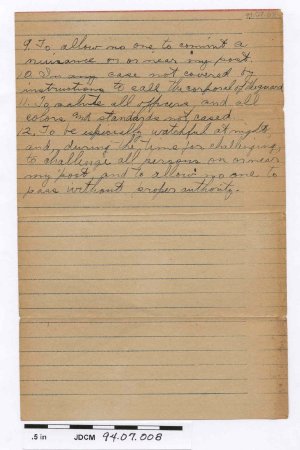 9. To allow no one to commit a
nuisance on or near my post.
10. In any case not covered by
instructions to call the corporal of the guard
11. To salute all officers, and all
colors and standards not cased.
12. To be especially watchful at night,
and, during the time for challenging,
to challenge all persons on or near
my post, and to allow no one to
pass without proper authority.
.5 in JDCM 94.07.008